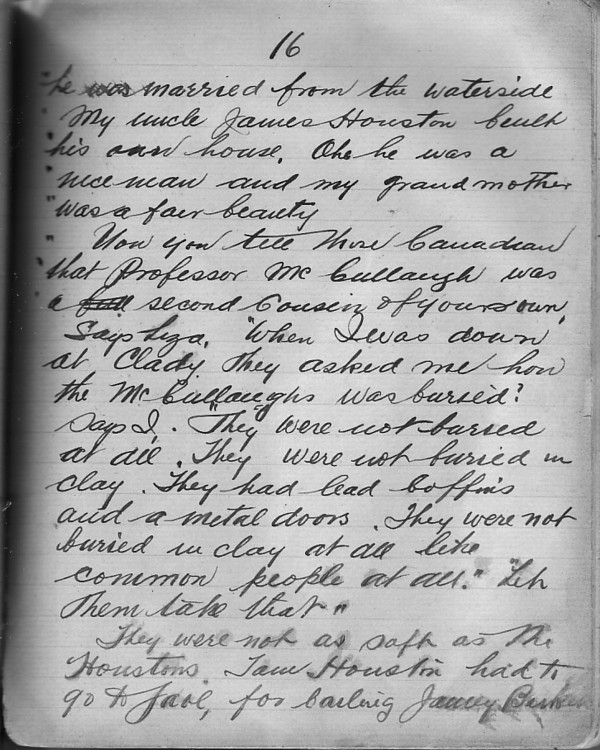 16
"he was married from the waterside
"My uncle James Houston built
"his own house. Oh he was a
"nice man and my grandmother
"was a fair beauty
" You you tell those Canadian
that Professor McCullaugh was
a full second Cousin of yours own,
Says Liza, "When I was down
at Clady they asked me how
the McCullaughs was buried?
Says I. "They were not buried
at all. They were not buried in
clay. They had lead Coffins
and a metal doors. They were not
buried in clay at all like
common people at all." "Let
them take that"
They were not as saft as the
Houstons. Tam Houston had to
go to Jaol, for bailing Jamey